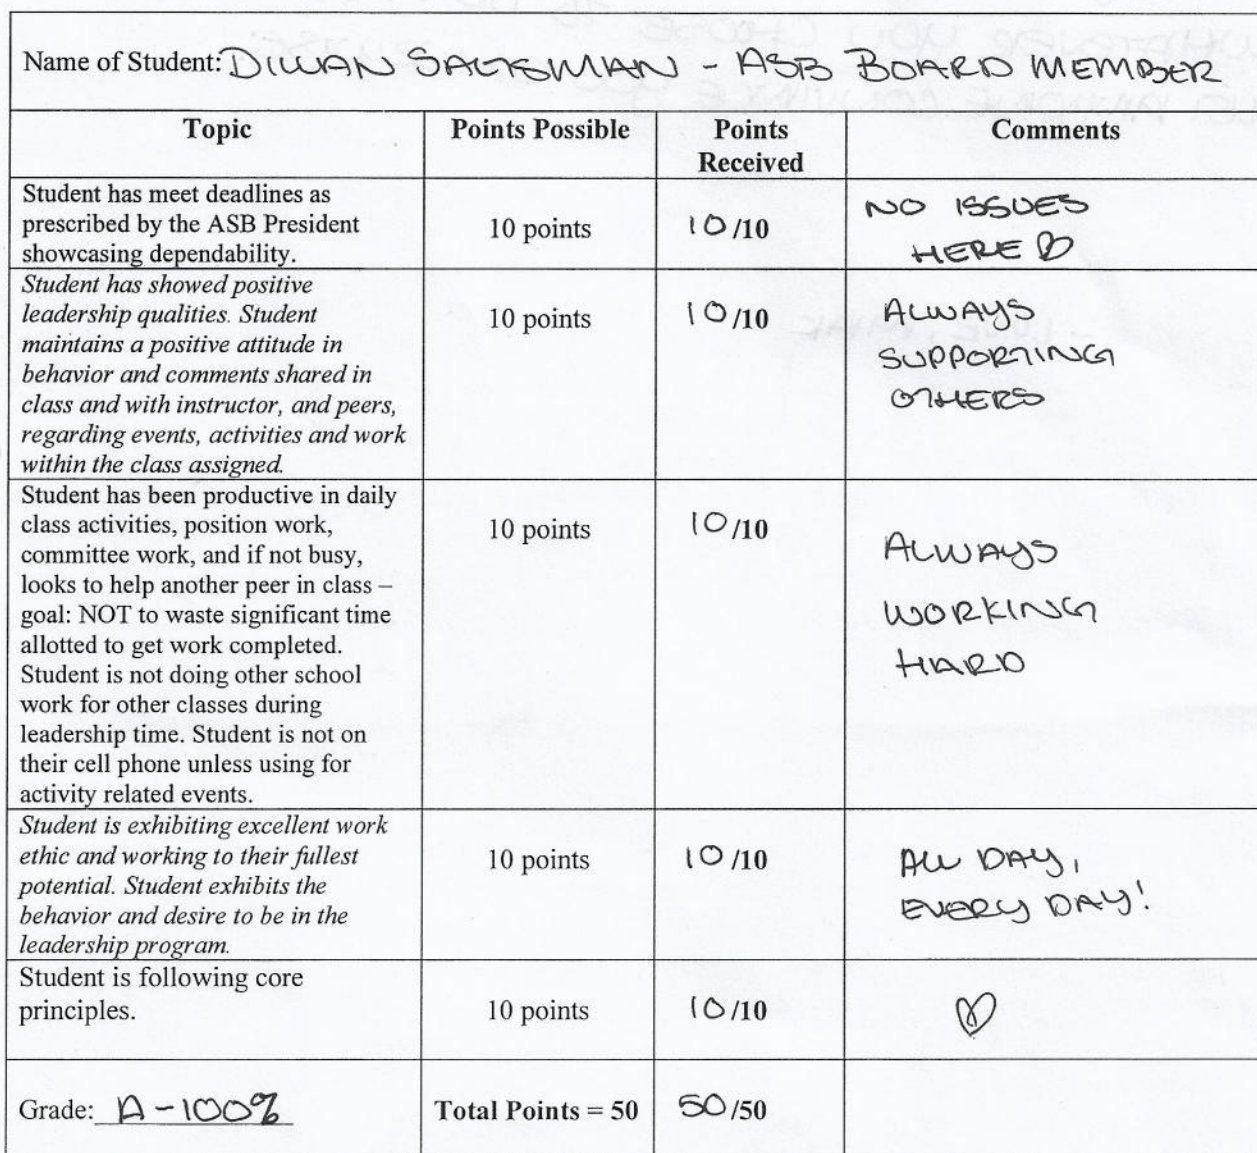 Name of Student: DILLAN SALTSMAN - ASB BOARD MEMBER
Topic
Points Possible
Points
Received
Comments
Student has meet deadlines as
prescribed by the ASB President
showcasing dependability.
10 points
10/10
NO ISSUES
HERE
Student has showed positive
leadership qualities. Student
maintains a positive attitude in
behavior and comments shared in
class and with instructor, and peers,
regarding events, activities and work
within the class assigned.
10 points
10/10
ALWAYS
SUPPORTING
OTHERS
Student has been productive in daily
class activities, position work,
committee work, and if not busy,
looks to help another peer in class –
goal: NOT to waste significant time
allotted to get work completed.
Student is not doing other school
work for other classes during
leadership time. Student is not on
their cell phone unless using for
activity related events.
10 points
10/10
ALWAYS
WORKING
HARD
Student is exhibiting excellent work
ethic and working to their fullest
potential. Student exhibits the
behavior and desire to be in the
leadership program.
10 points
10/10
ALL DAY,
EVERY DAY!
Student is following core
principles.
10 points
10/10
Grade: A-100%
Total Points = 50
50/50